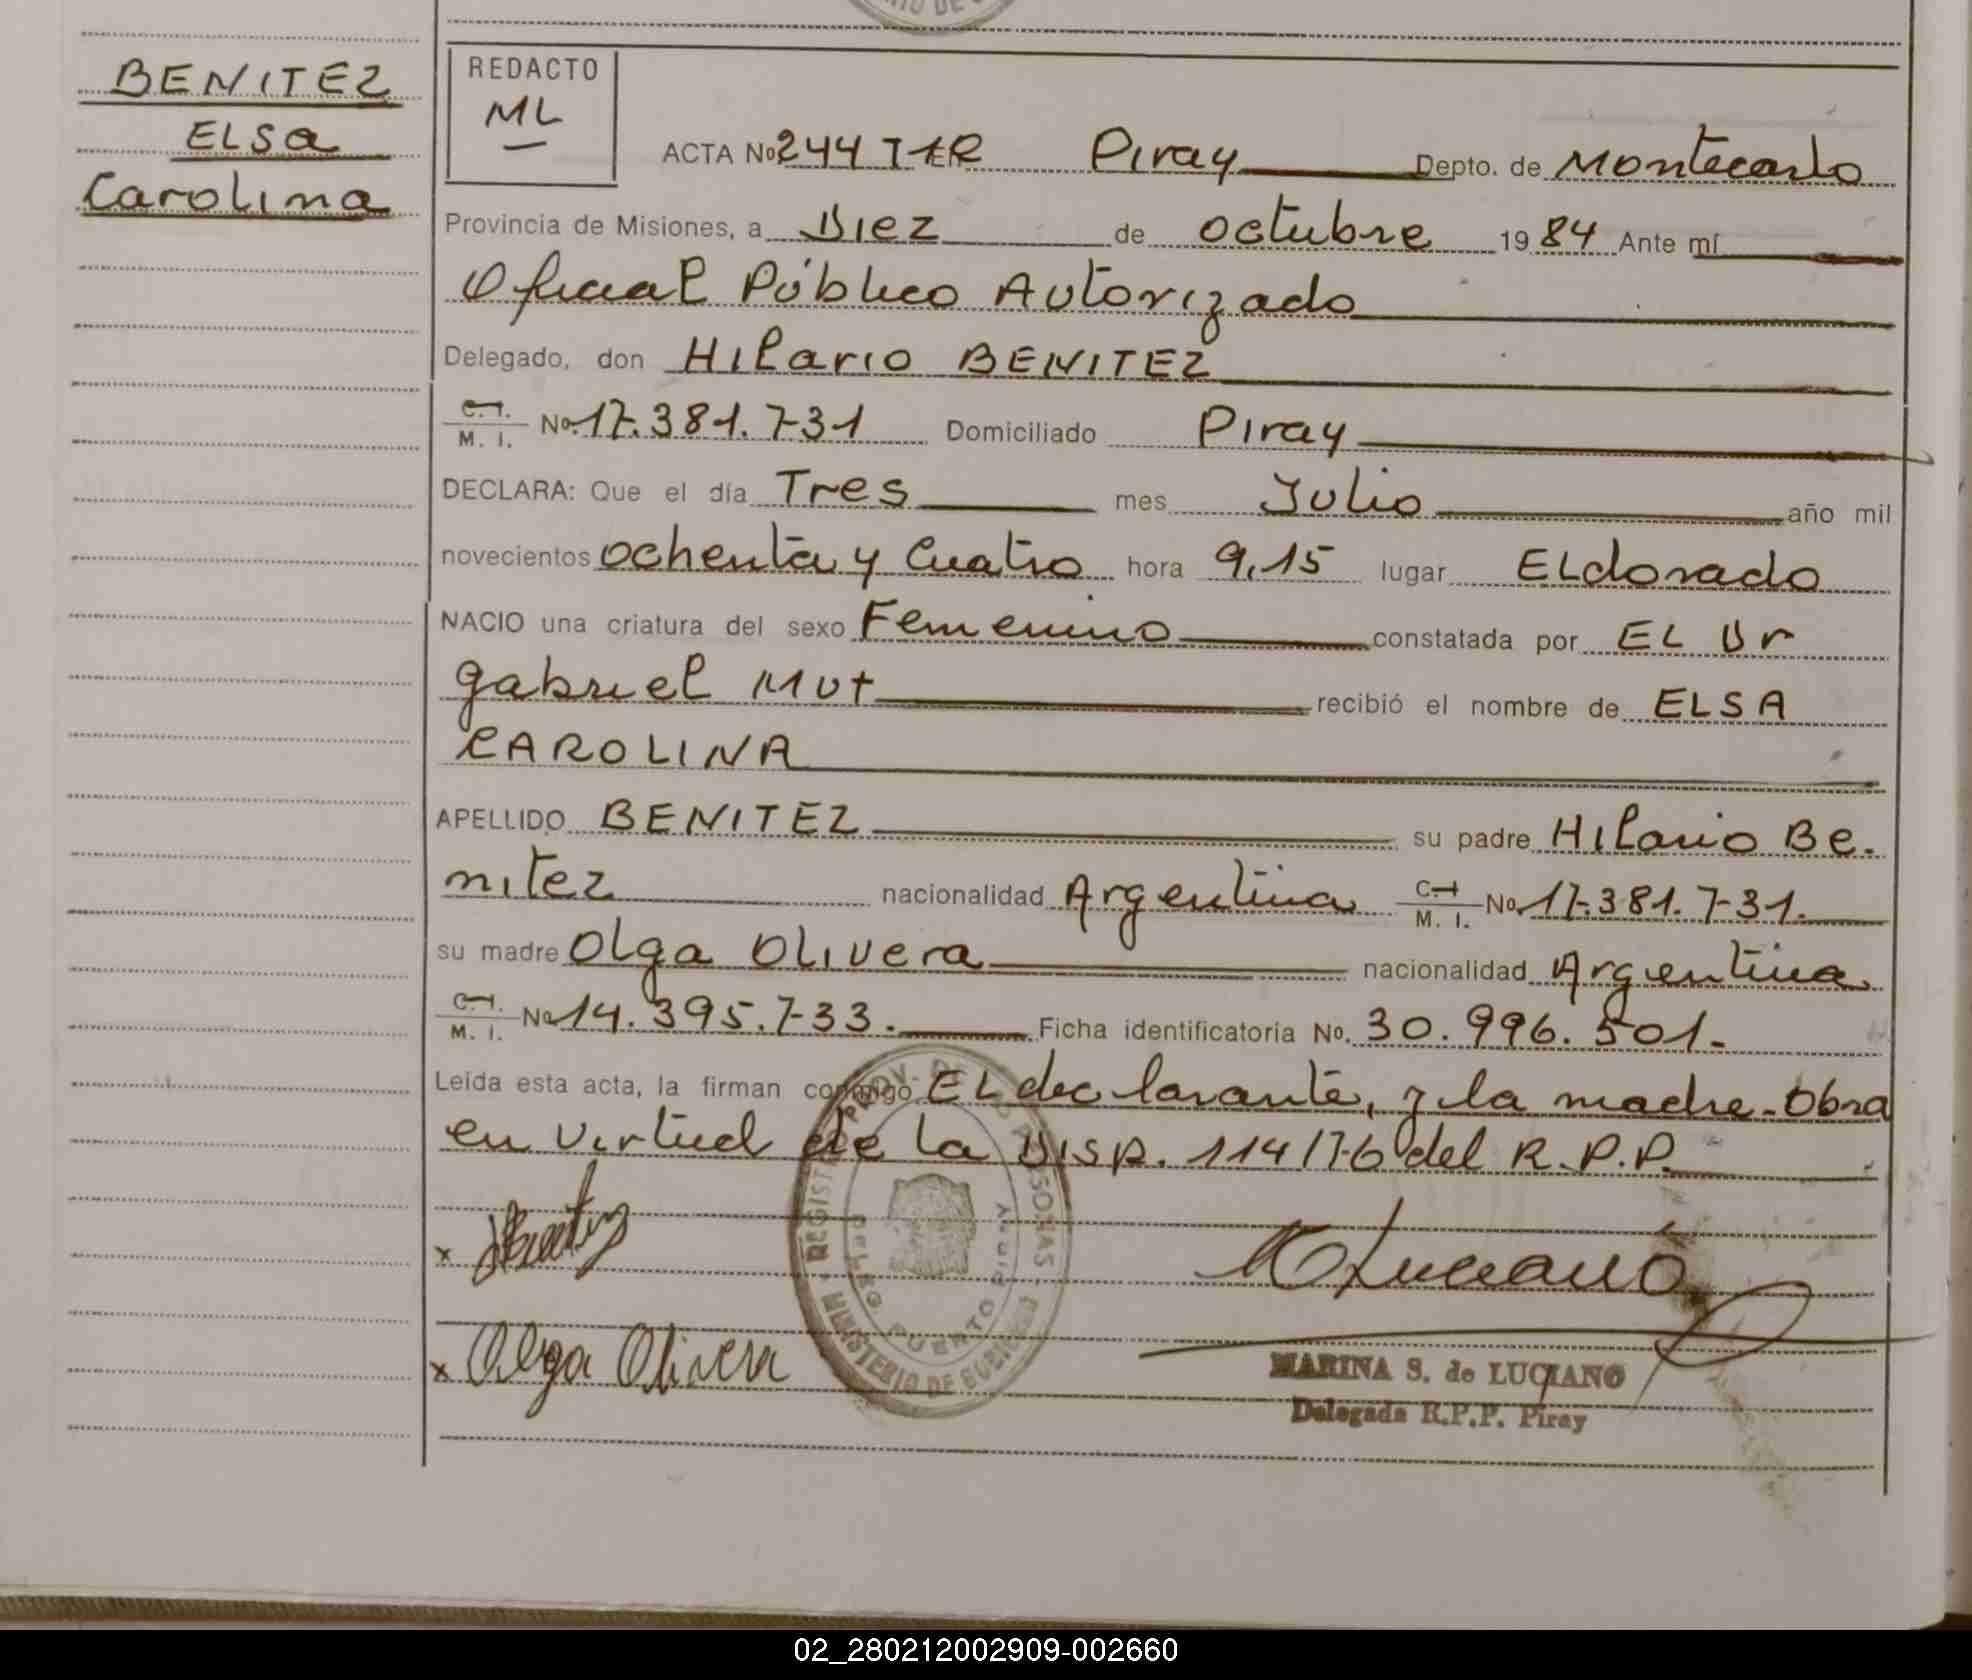 BENITEZ
ELSA
Carolina
REDACTO
ML
ACTA No 244 T1ER Piray Depto. de Montecarlo
Provincia de Misiones, a Diez de octubre 1984 Ante mí
Oficial Público Autorizado
Delegado, don Hilario BENITEZ
C.I. / M. I. No. 17.381.731 Domiciliado Piray
DECLARA: Que el día Tres mes Julio año mil
novecientos ochenta y Cuatro hora 9,15 lugar ELdorado
NACIO una criatura del sexo Femenino constatada por EL Dr
gabriel Mut recibió el nombre de ELSA
CAROLINA
APELLIDO BENITEZ su padre Hilario Be-
nitez nacionalidad Argentina C.I / M. I. No. 17.381.731.
su madre Olga Olivera nacionalidad Argentina
C.I. / M. I. No 14.395.733. Ficha identificatoria No. 30.996.501.-
Leída esta acta, la firman conmigo EL declarante, y la madre-Obra
en virtud de la DISP. 114/76 del R.P.P.
x
x Olga Olivera
REGISTRO PROV. DE LAS PERSONAS
MINISTERIO DE GOBIERNO
DELEG. PUERTO PIRAY
Luciano
MARINA S. de LUCIANO
Delegada R.P.P. Piray
02_280212002909-002660